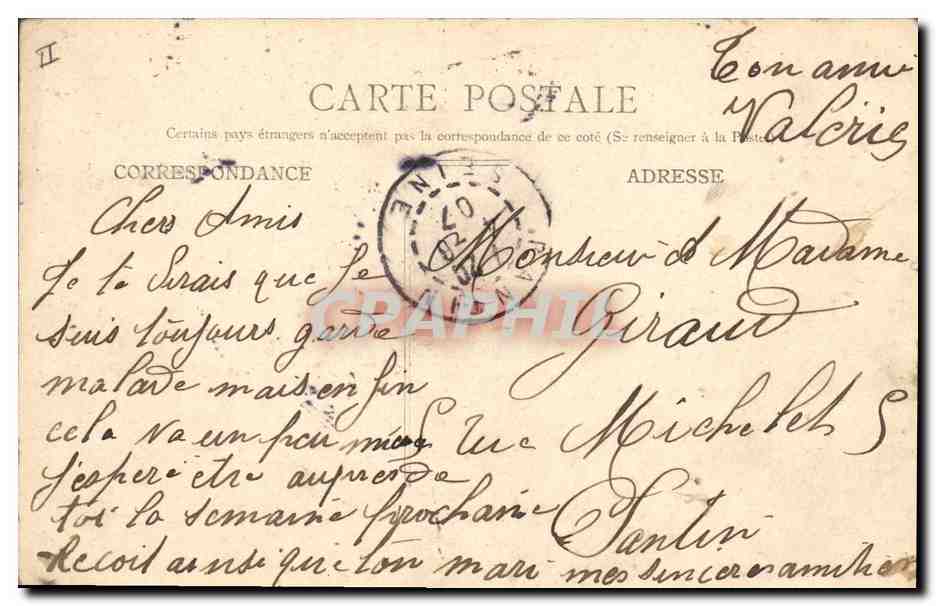 II
Ton amie
Valérie
CARTE POSTALE
Certains pays étrangers n'acceptent pas la correspondance de ce coté (Se renseigner à la Poste)
CORRESPONDANCE
ADRESSE
SEINE
PANTIN
07
Chers Amis
Je te dirais que je
suis toujours garde
malade mais en fin
cela va un peu mieu
j'espere etre aupres de
toi la semaine prochaine
Recoit ainsi que ton mari mes sinceres amitier
Monsieur et Madame
Giraud
5 rue Michelet 5
Pantin
CPAPHIL